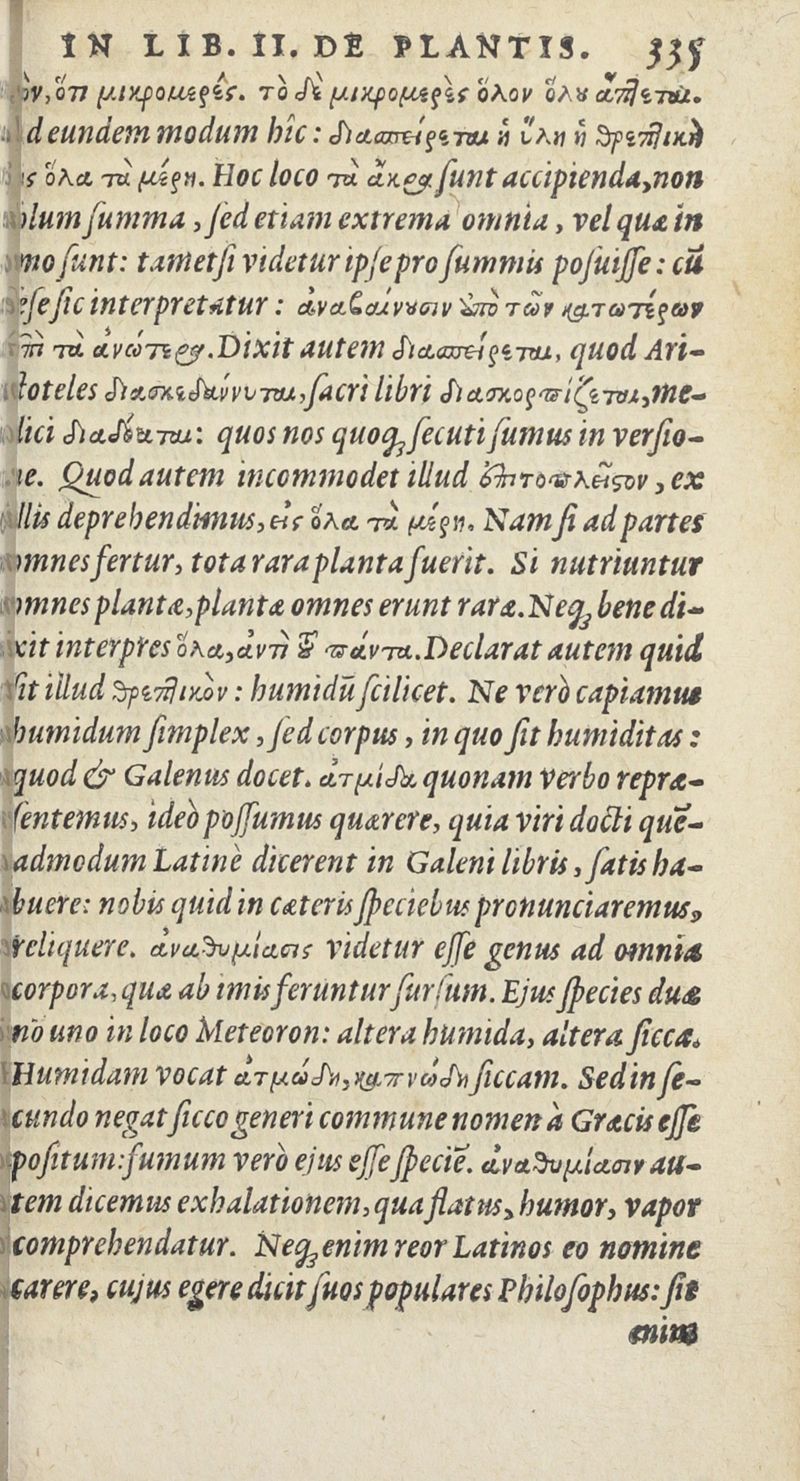 IN LIB. II. DE PLANTIS. 335
ὅτι μικρομερές. τὸ δὲ μικρομερὲς ὅλον ὅλῳ
deundem modum hîc: διασπείρεται ἡ ὕλη ἡ θρεπτικὴ
ὅλα τὰ μέρη. Hoc loco τὰ ἄκρα ſunt accipienda, non
ſumma, ſed etiam extrema omnia, vel quæ in
ſunt: tametſi videtur ipſe pro ſummis poſuiſſe: cū
ſic interpretatur: ἀναβαίνουσιν ἀπὸ τῶν κατωτέρων
τὰ ἀνώτερα. Dixit autem διασπείρεται, quod Ari-
ſtoteles διασκεδάννυται, ſacri libri διασκορπίζεται, me-
dici διαδίδοται: quos nos quoq; ſecuti ſumus in verſio-
ne. Quod autem incommodet illud ἐπιτοπλεῖστον, ex
illis deprehendimus, εἰς ὅλα τὰ μέρη. Nam ſi ad partes
omnes fertur, tota rara planta fuerit. Si nutriuntur
omnes plantæ, plantæ omnes erunt raræ. Neq; bene di-
xit interpres ὅλα, ἀντὶ τοῦ πάντα. Declarat autem quid
ſit illud θρεπτικόν: humidū ſcilicet. Ne verò capiamus
humidum ſimplex, ſed corpus, in quo ſit humiditas:
quod & Galenus docet. ἀτμίδα quonam verbo repræ-
ſentemus, ideò poſſumus quærere, quia viri docti quē-
admodum Latinè dicerent in Galeni libris, ſatis ha-
buere: nobis quid in cæteris ſpeciebus pronunciaremus,
reliquere. ἀναθυμίασις videtur eſſe genus ad omnia
corpora, quæ ab imis feruntur ſurſum. Ejus ſpecies duæ
nō uno in loco Meteoron: altera humida, altera ſicca.
Humidam vocat ἀτμώδη, καπνώδη ſiccam. Sed in ſe-
cundo negat ſicco generi commune nomen à Græcis eſſe
poſitum: fumum verò ejus eſſe ſpeciē. ἀναθυμίασιν au-
tem dicemus exhalationem, qua flatus, humor, vapor
comprehendatur. Neq; enim reor Latinos eo nomine
carere, cujus egere dicit ſuos populares Philoſophus: ſit
enim